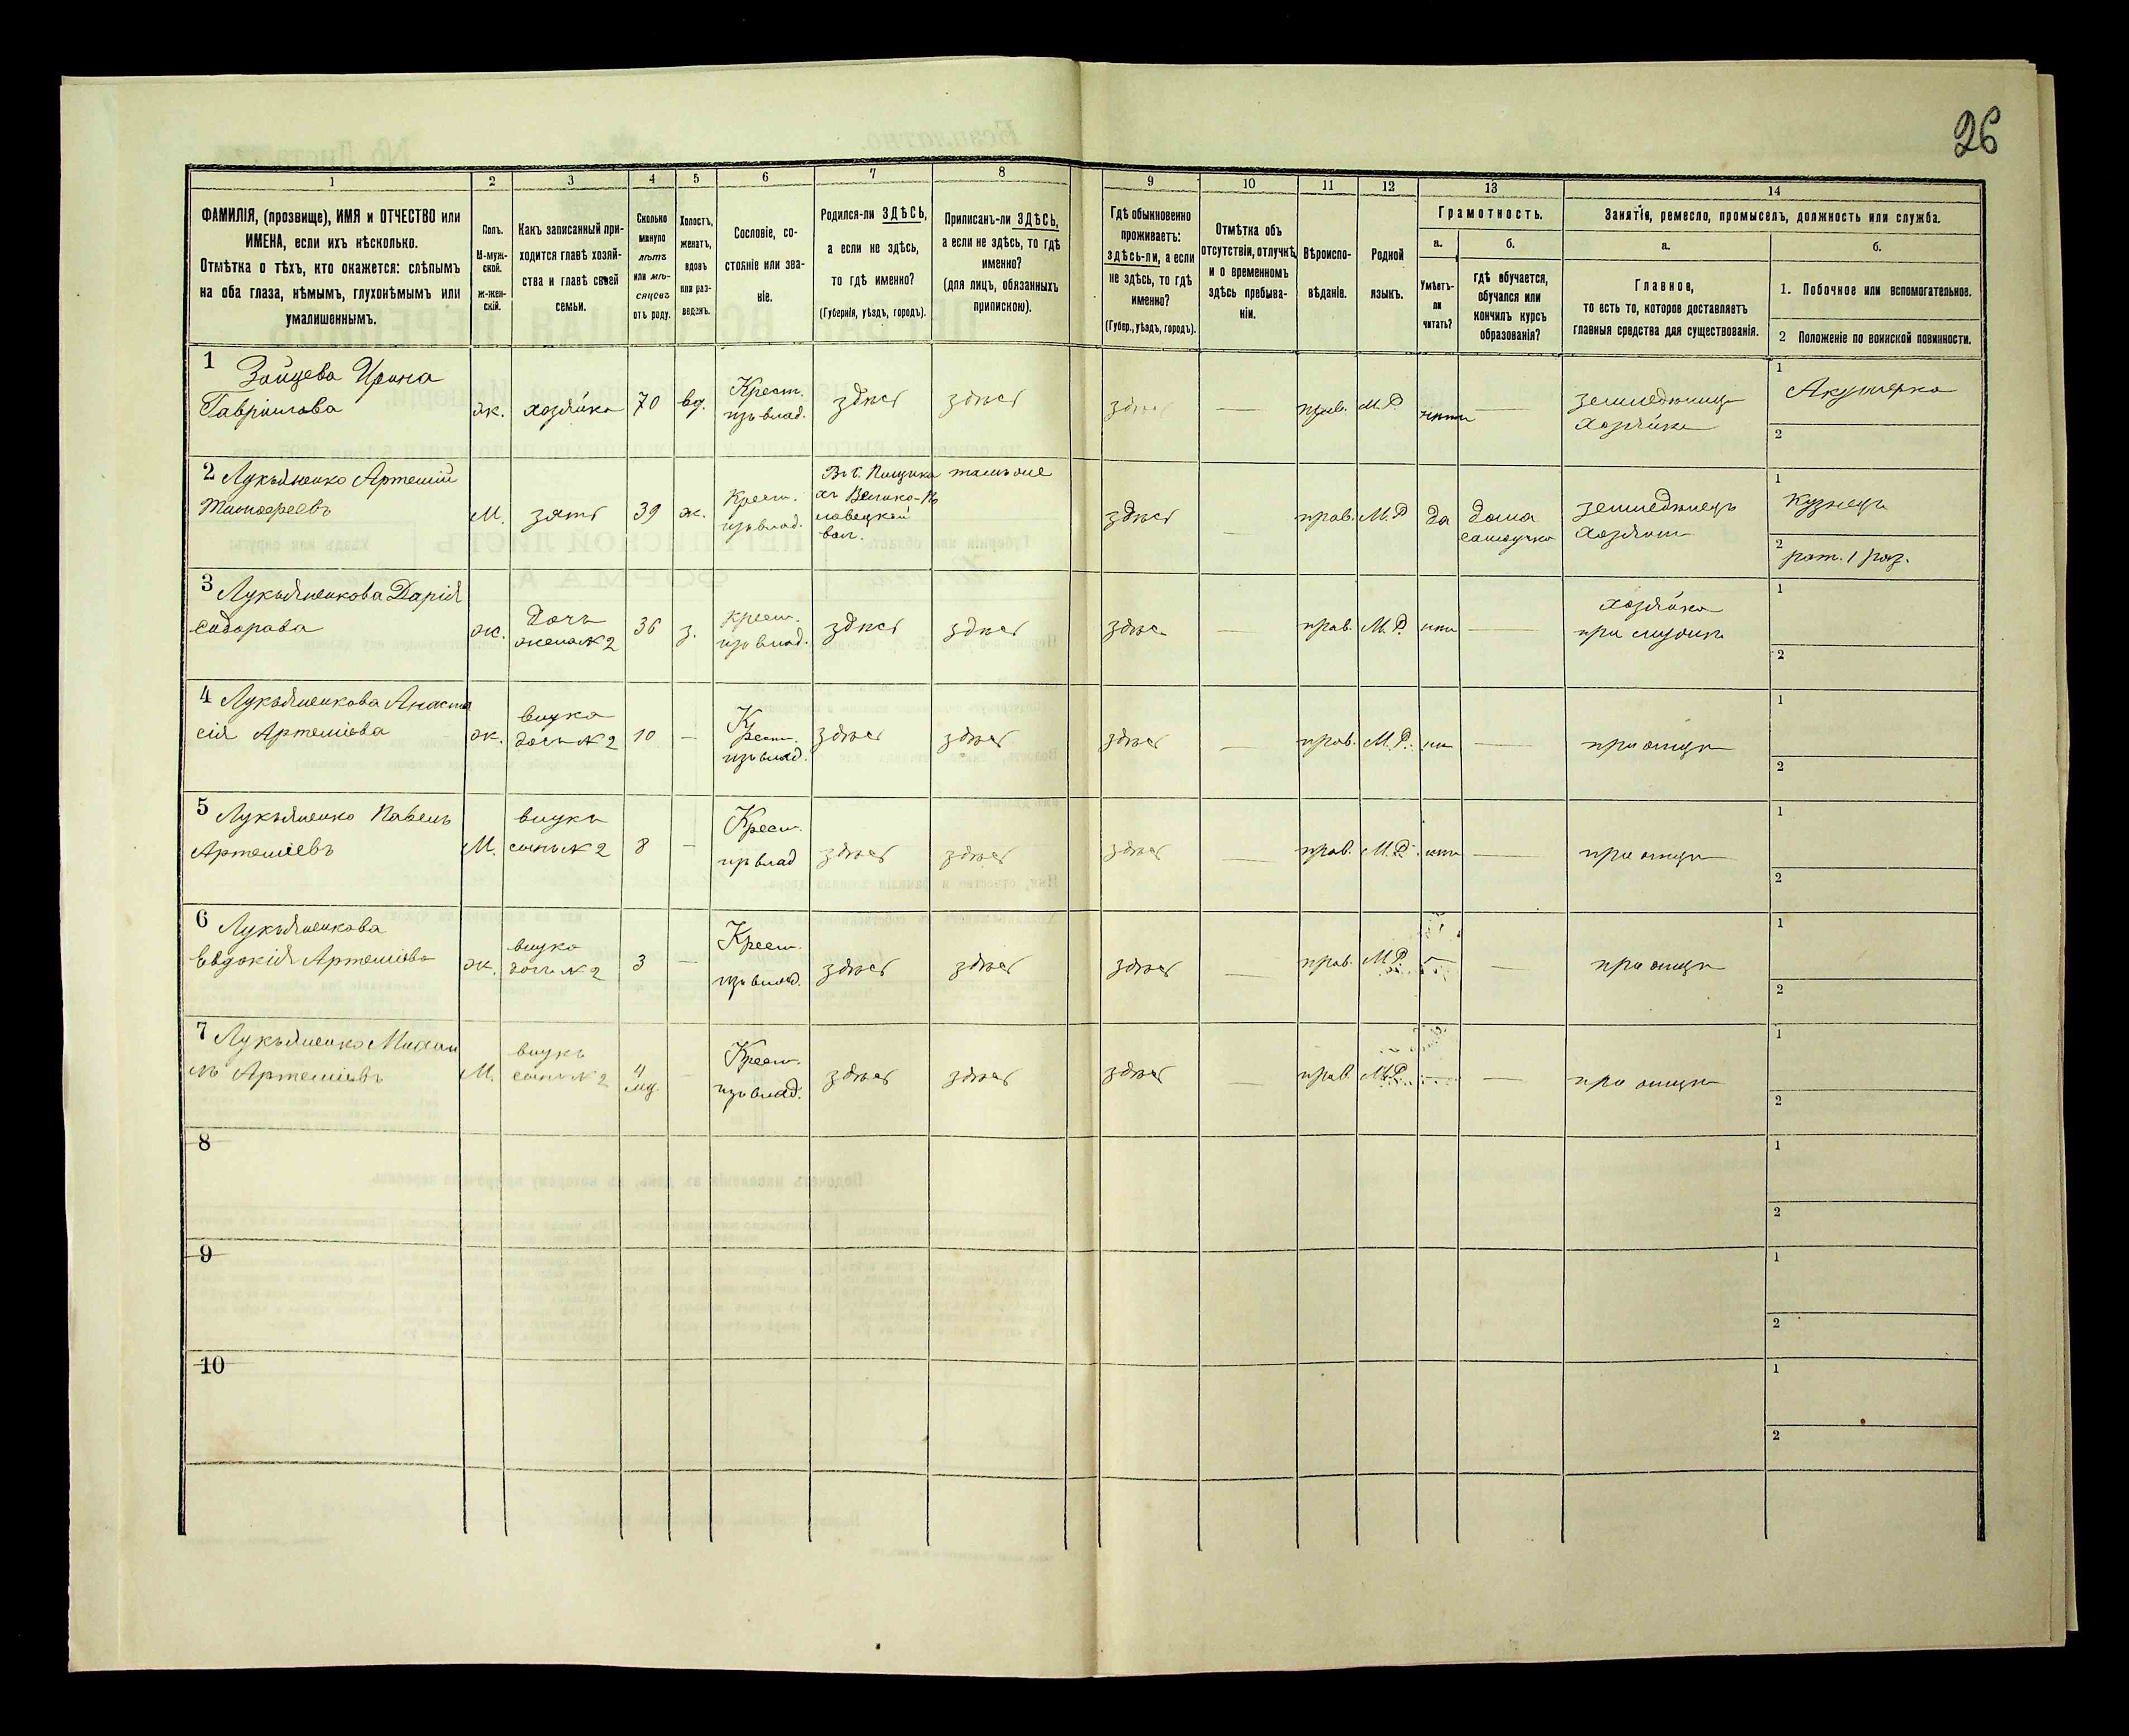 26
1 2 3 4 5 6 7 8 9 10 11 12 13 14
ФАМИЛІЯ, (прозвище), ИМЯ и ОТЧЕСТВО или
ИМЕНА, если ихъ нѣсколько.
Отмѣтка о тѣхъ, кто окажется: слѣпымъ
на оба глаза, нѣмымъ, глухонѣмымъ или
умалишеннымъ.
Полъ.
М-муж-
ской.
Ж-жен-
скій.
Какъ записанный при-
ходится главѣ хозяй-
ства и главѣ своей
семьи.
Сколько
минуло
лѣтъ
или мѣ-
сяцевъ
отъ роду.
Холостъ,
женатъ,
вдовъ
или раз-
веденъ.
Сословіе, со-
стояніе или зва-
ніе.
Родился-ли ЗДѢСЬ,
а если не здѣсь,
то гдѣ именно?
(Губернія, уѣздъ, городъ).
Приписанъ-ли ЗДѢСЬ,
а если не здѣсь, то гдѣ
именно?
(для лицъ, обязанныхъ
припискою).
Гдѣ обыкновенно
проживаетъ:
здѣсь-ли, а если
не здѣсь, то гдѣ
именно?
(Губер., уѣздъ, городъ).
Отмѣтка объ
отсутствіи, отлучкѣ
и о временномъ
здѣсь пребыва-
ніи.
Вѣроиспо-
вѣданіе.
Родной
языкъ.
Грамотность.
а.
Умѣетъ-
ли
читать?
б.
Гдѣ обучается,
обучался или
кончилъ курсъ
образованія?
Занятіе, ремесло, промыселъ, должность или служба.
а.
Главное,
то есть то, которое доставляетъ
главныя средства для существованія.
б.
1. Побочное или вспомогательное.
2 Положеніе по воинской повинности.
1 Зайцева Ирина
Гаврiилова
ж. хозяйка 70 вд. Крест.
изъ влад.
здѣсь здѣсь здѣсь — прав. М.Р. нѣтъ —
хозяйка
1 Акушерка
2
2 Лукьяненко Артемій
Тимофеевъ
М. зять 39 ж. Крест.
изъ влад.
тамъ же
здѣсь — прав. М.Р. да дома
самоучка
земледѣлецъ
хозяинъ
1 Кузнецъ
2 рат. 1 раз.
3 Лукьяненкова Дарія
Сидорова
ж. дочь
жена № 2
36 з. крест.
изъ влад.
здѣсь здѣсь здѣсь — прав. М.Р. нѣтъ —
хозяйка
при мужѣ
1
2
4 Лукьяненкова Анаста
сія Артеміева
ж. внука
дочь № 2
10 — Крест.
изъ влад.
здѣсь здѣсь здѣсь — прав. М.Р. нѣтъ — при отцѣ
1
2
5 Лукьяненко Павелъ
Артеміевъ
М. внукъ
сынъ № 2
8 — Крест.
изъ влад
здѣсь здѣсь здѣсь — прав. М.Р. нѣтъ — при отцѣ
1
2
6 Лукьяненкова
Евдокія Артеміева
ж. внука
дочь № 2
3 — Крест.
изъ влад.
здѣсь здѣсь здѣсь — прав. М.Р. — — при отцѣ
1
2
7 Лукьяненко Михаи
лъ Артеміевъ
М. внукъ
сынъ № 2
4
мѣ.
— Крест.
изъ влад.
здѣсь здѣсь здѣсь — прав. М.Р. — — при отцѣ
1
2
8
1
2
9
1
2
10
1
2